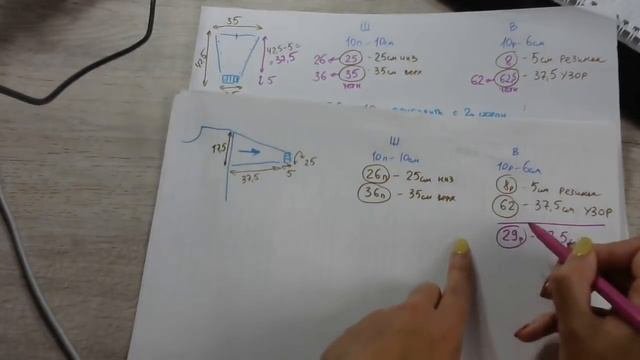 35
42,5-5=
37,5
5
Ш
10п - 10см
26 ← 25 - 25см низ
36 ← 35 35см верх
В
10р - 6см
8 - 5см резинка
62 ← 62,5 - 37,5 УЗОР
17,5
37,5
5
25
Ш
10п - 10см
26п - 25см низ
36п - 35см верх
В
10р - 6см
8р - 5см резинка
62 - 37,5см УЗОР
29р -